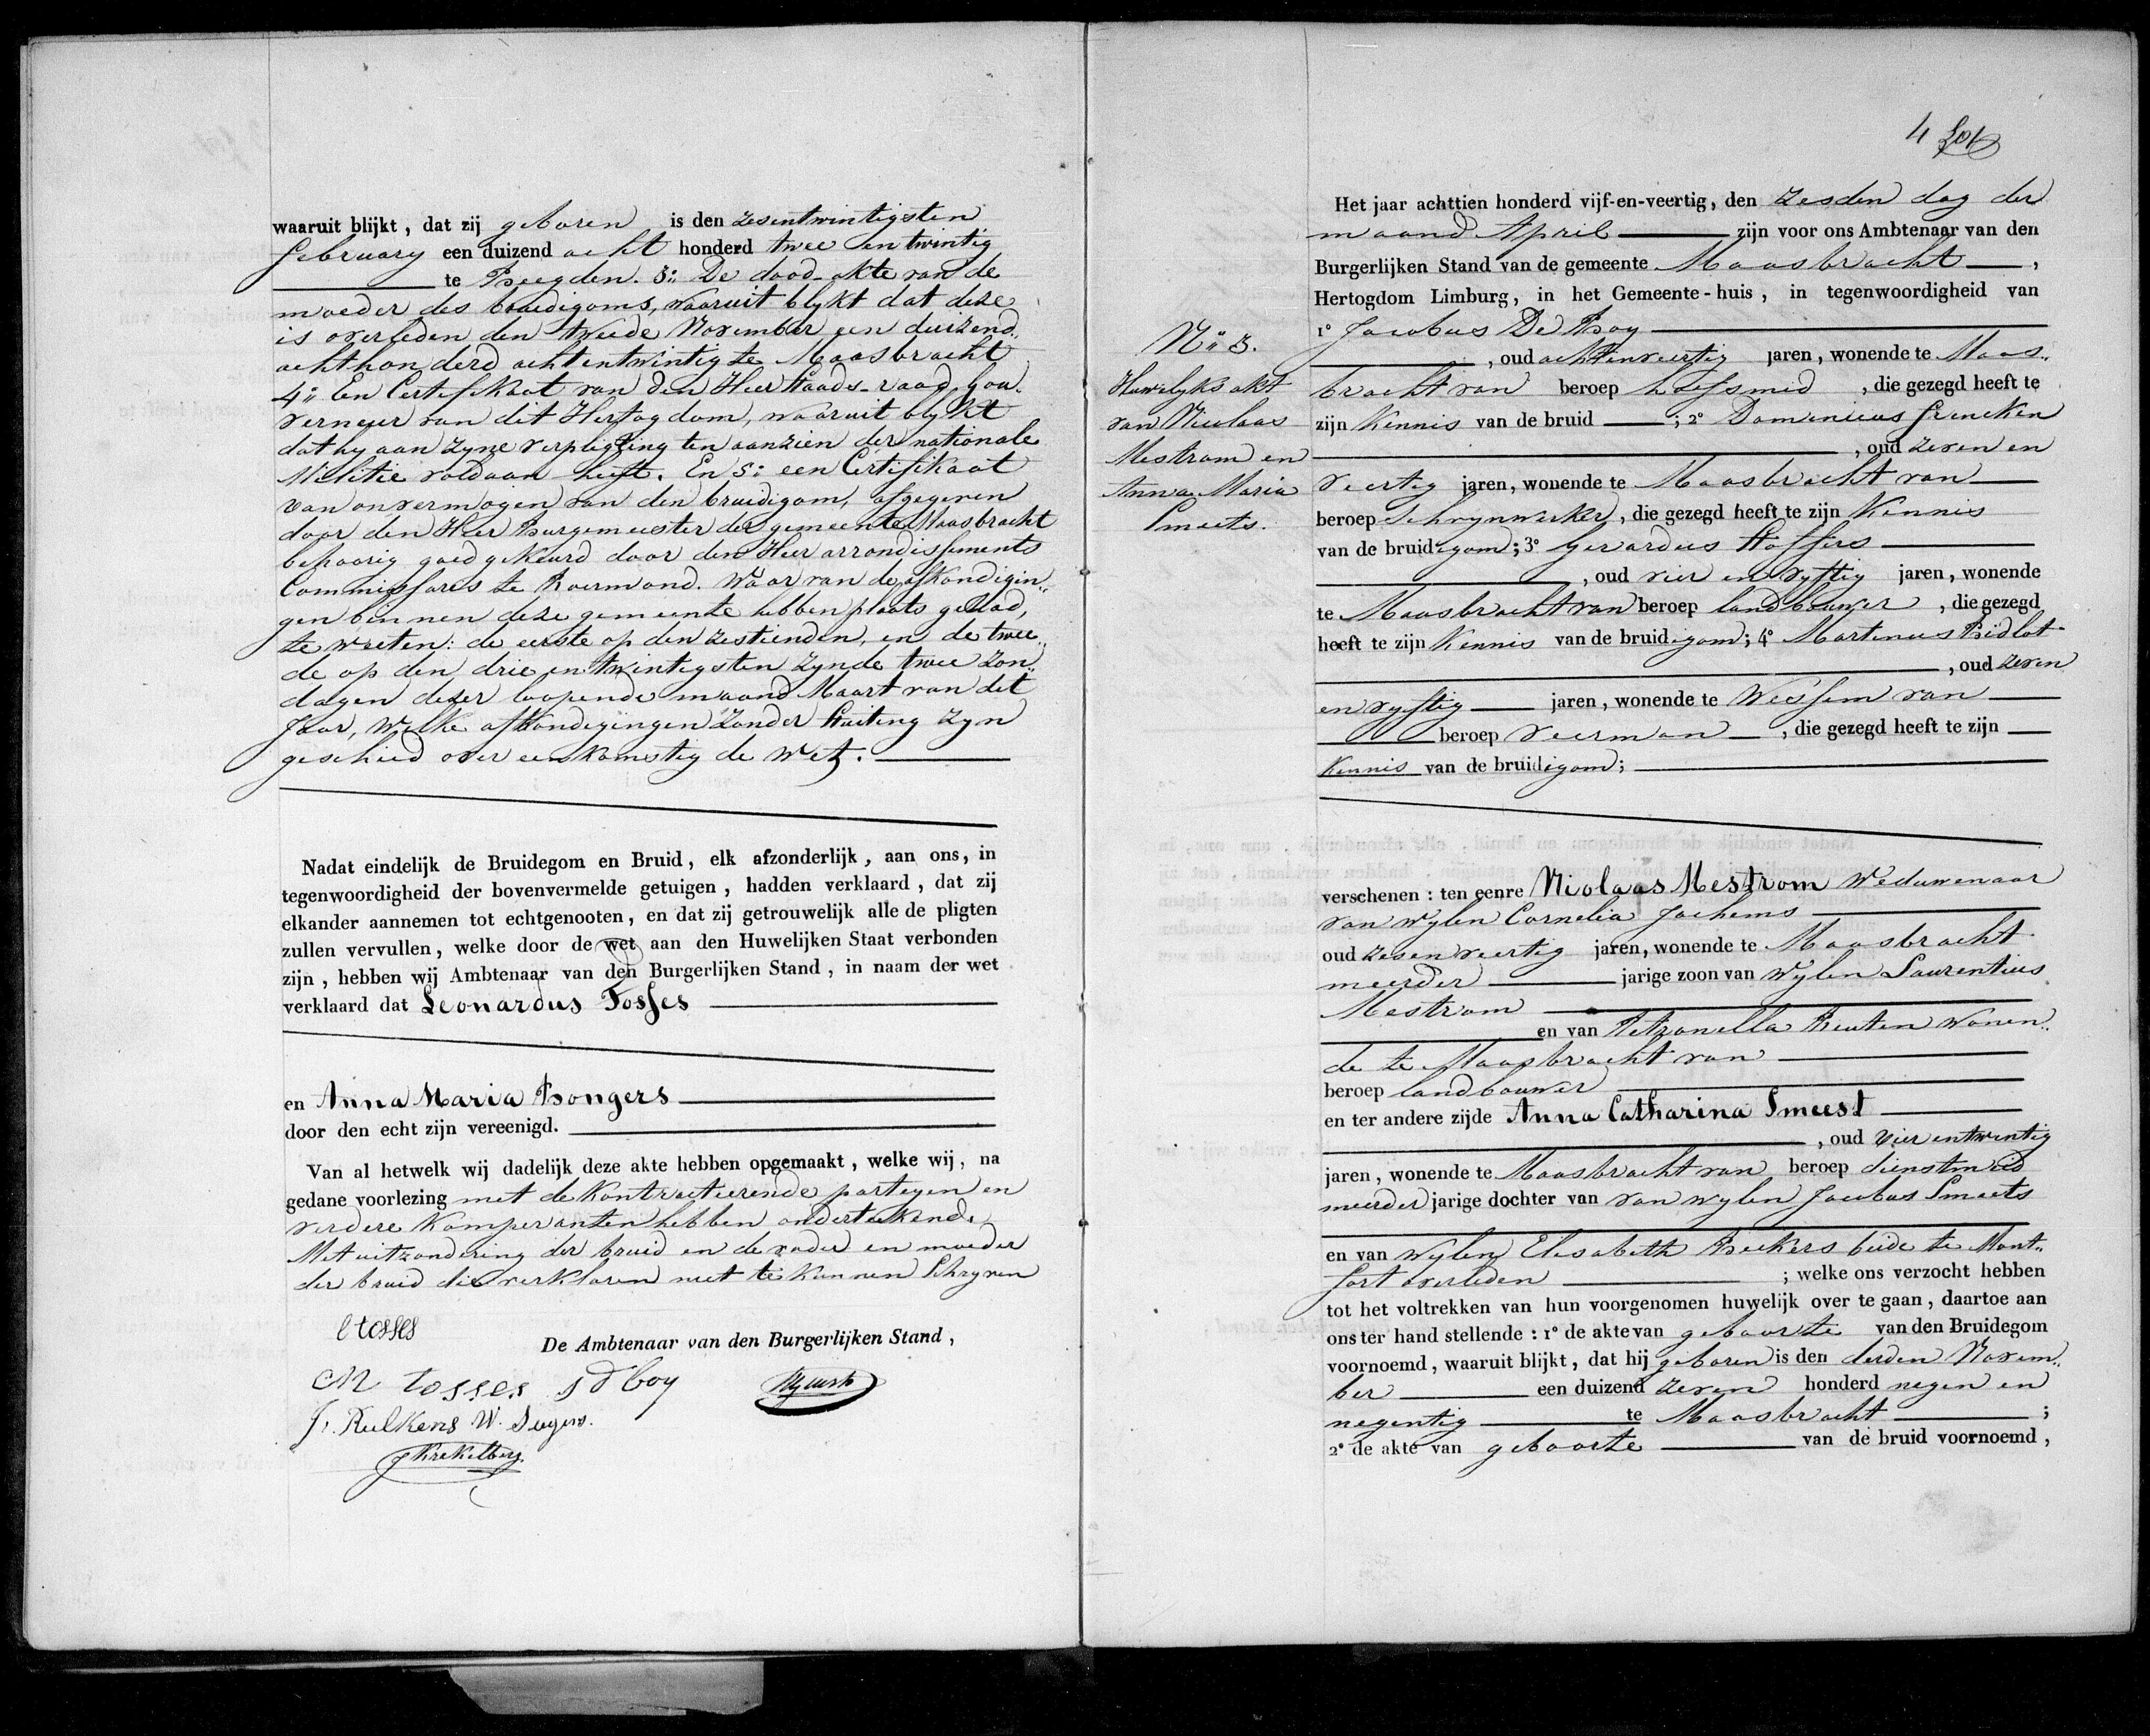 waaruit blijkt, dat zij geboren is den zesentwintigsten
february een duizend acht honderd twee en twintig
te Beegden. 3:. De dood-akte van de
moeder des bruidigoms, waaruit blykt dat deze
is overleden den tweede November een duizend
acht honderd achtentwintig te Maasbracht
4:. Een Certifikaat van den Heer Staads-raad Gou-
verneur van dit Hertogdom, waaruit blykt
dat hy aan zyne verpligting ten aanzien der nationale
Militie voldaan heeft. En 5: een Certifikaat
van onvermogen van den bruidigom, afgegeven
door den Heer Burgemeester der gemeente Maasbracht
behoorig goed gekeurd door den Heer arrondissements
Commissaris te Roermond. Waar van de afkondigin-
gen binnen deze gemeente hebben plaats gehad,
te weeten: de eerste op den zestienden, en de twee-
de op den drie en twintigsten zynde twee zon-
dagen dezer loopende maand Maart van dit
Jaar, welke afkondigingen zonder stuiting zyn
geschied over eenkomstig de wet.
Nadat eindelijk de Bruidegom en Bruid, elk afzonderlijk, aan ons, in
tegenwoordigheid der bovenvermelde getuigen, hadden verklaard, dat zij
elkander aannemen tot echtgenooten, en dat zij getrouwelijk alle de pligten
zullen vervullen, welke door de wet aan den Huwelijken Staat verbonden
zijn, hebben wij Ambtenaar van den Burgerlijken Stand, in naam der wet
verklaard dat Leonardus Tosses
en Anna Maria Bongers
door den echt zijn vereenigd.
Van al hetwelk wij dadelijk deze akte hebben opgemaakt, welke wij, na
gedane voorlezing met de Kontracteerende parteyen en
verdere Komperanten hebben onderteekend.
Met uitzondering der bruid en de vader en moeder
der bruid die verklaren niet te kunnen Schryven
l tosses
De Ambtenaar van den Burgerlijken Stand,
M tosses J d boy
J. Rulkens W.
J Krekelberg.
4
Het jaar achttien honderd vijf-en-veertig, den zesden dag der
maand April zijn voor ons Ambtenaar van den
Burgerlijken Stand van de gemeente Maasbracht,
Hertogdom Limburg, in het Gemeente-huis, in tegenwoordigheid van
1° Jacobus De Boy
, oud achtenveertig jaren, wonende te Maas-
bracht van beroep hoefsmid, die gezegd heeft te
zijn Kennis van de bruid; 2° Domenicus Grencken
, oud zeven en
veertig jaren, wonende te Maasbracht van
beroep Schrynwerker, die gezegd heeft te zijn Kennis
van de bruidegom; 3° Gerardus Stoffers
, oud vier en vyftig jaren, wonende
te Maasbracht van beroep landbouwer, die gezegd
heeft te zijn Kennis van de bruidegom; 4° Martinus Bidlot
, oud zeven
en vyftig jaren, wonende te Wessem van
beroep veerman, die gezegd heeft te zijn
Kennis van de bruidegom;
N:. 3.
Huwelyks akt
van Nicolaas
Mestrom en
Anna Maria
Smeets.
verschenen: ten eenre Niolaas Mestrom Weduwenaar
van wylen Cornelia Jochems
oud zesenveertig jaren, wonende te Maasbracht
meerder jarige zoon van Wylen Laurentius
Mestrom
en van Petronella Beuten wonen-
de te Maasbracht van
beroep landbouwer
en ter andere zijde Anna Catharina Smeest
, oud vier entwintig
jaren, wonende te Maasbracht van beroep dienstmeid
meerder jarige dochter van van wylen Jacobus Smeets
en van wylen Elisabeth Beckers beide te Mont-
fort overleden; welke ons verzocht hebben
tot het voltrekken van hun voorgenomen huwelijk over te gaan, daartoe aan
ons ter hand stellende: 1° de akte van geboorte van den Bruidegom
voornoemd, waaruit blijkt, dat hij geboren is den derden Novem-
ber een duizend zeven honderd negen en
negentig te Maasbracht;
2° de akte van geboorte van de bruid voornoemd,